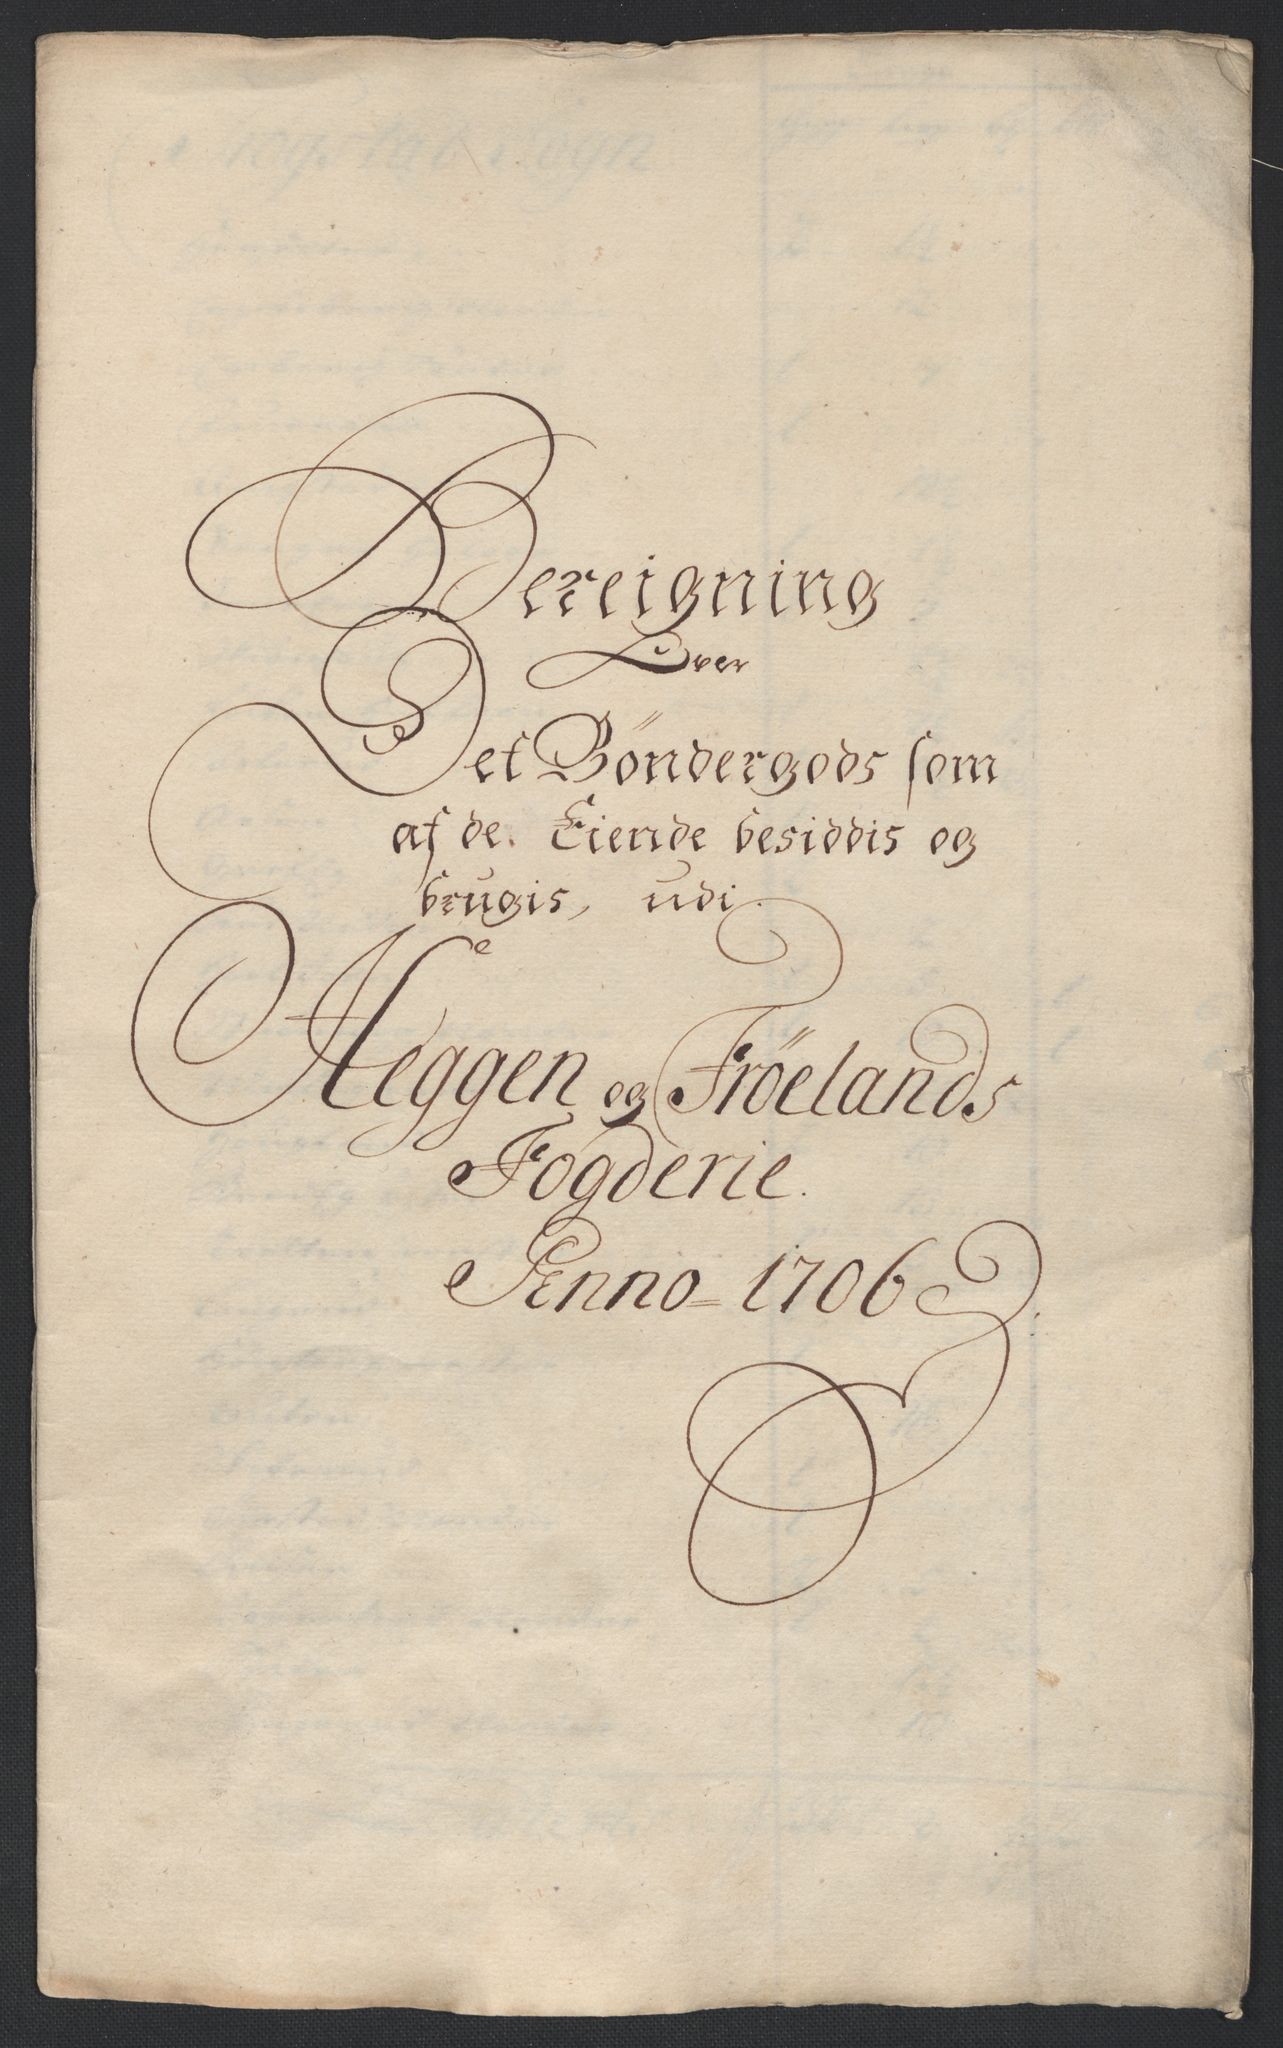 Bereigning
Over
Det Bøndergods som
af de. Eiende besiddis og
brugis, udi.
Heggen og Frøelands
Fogderie.
Anno = 1706